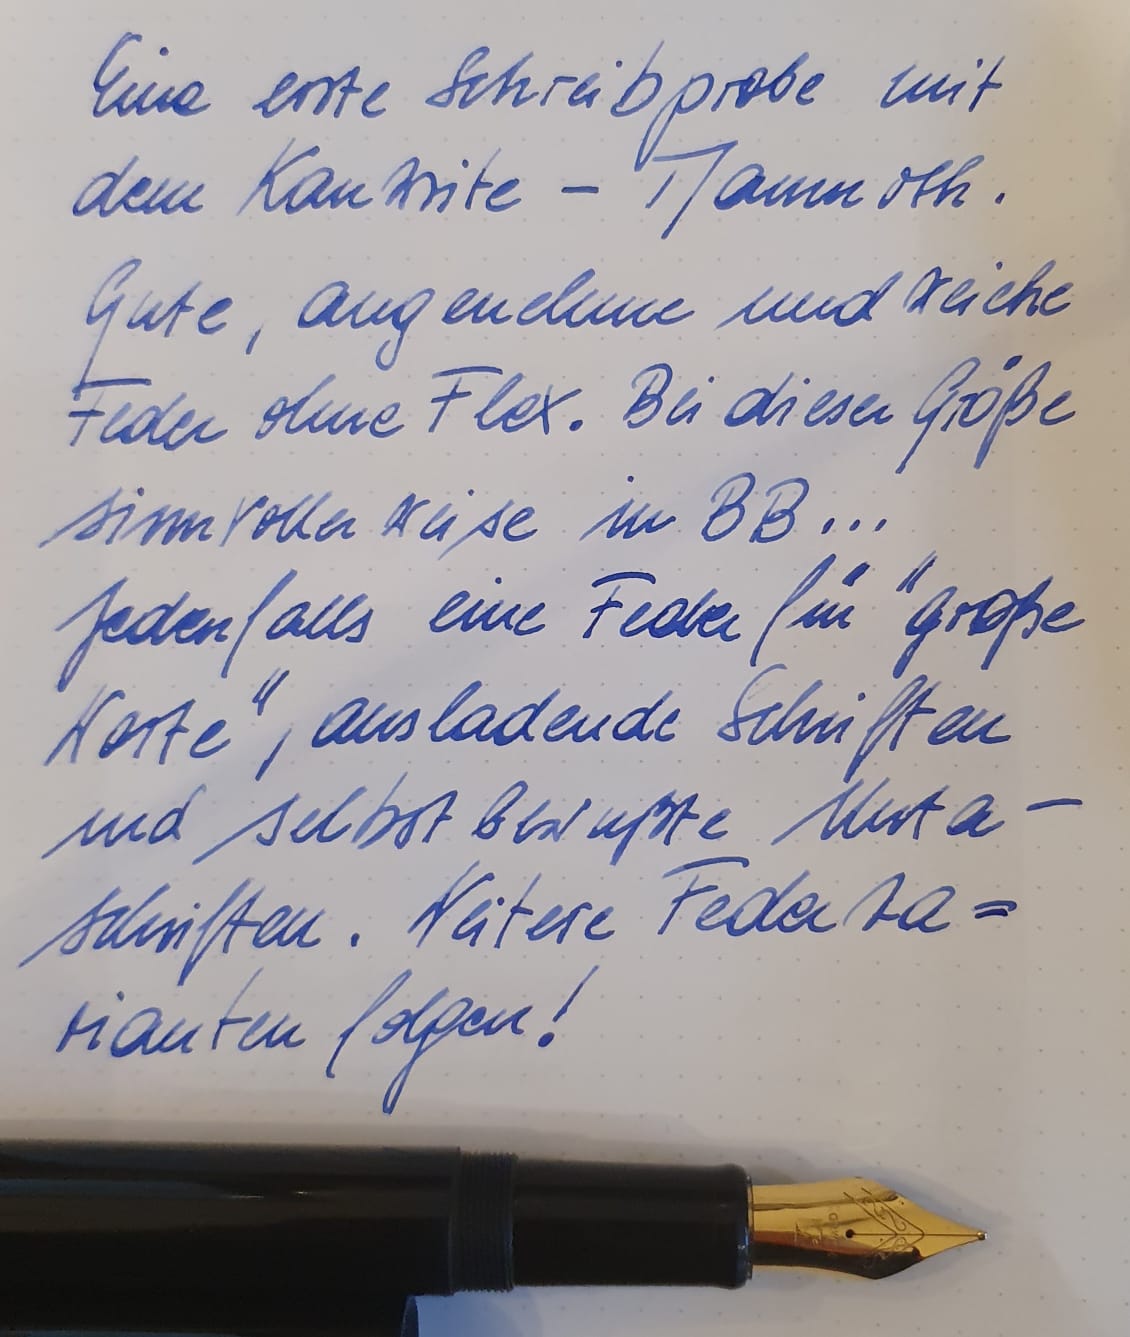 Eine erste Schreibprobe mit
dem Kanwrite – Mammoth.
Gute, angenehme und weiche
Feder ohne Flex. Bei dieser Größe
sinnvollerweise in BB...
Jedenfalls eine Feder für "große
Worte", ausladende Schriften
und selbstbewußte Unter–
schriften. Weitere Federva=
rianten folgen!